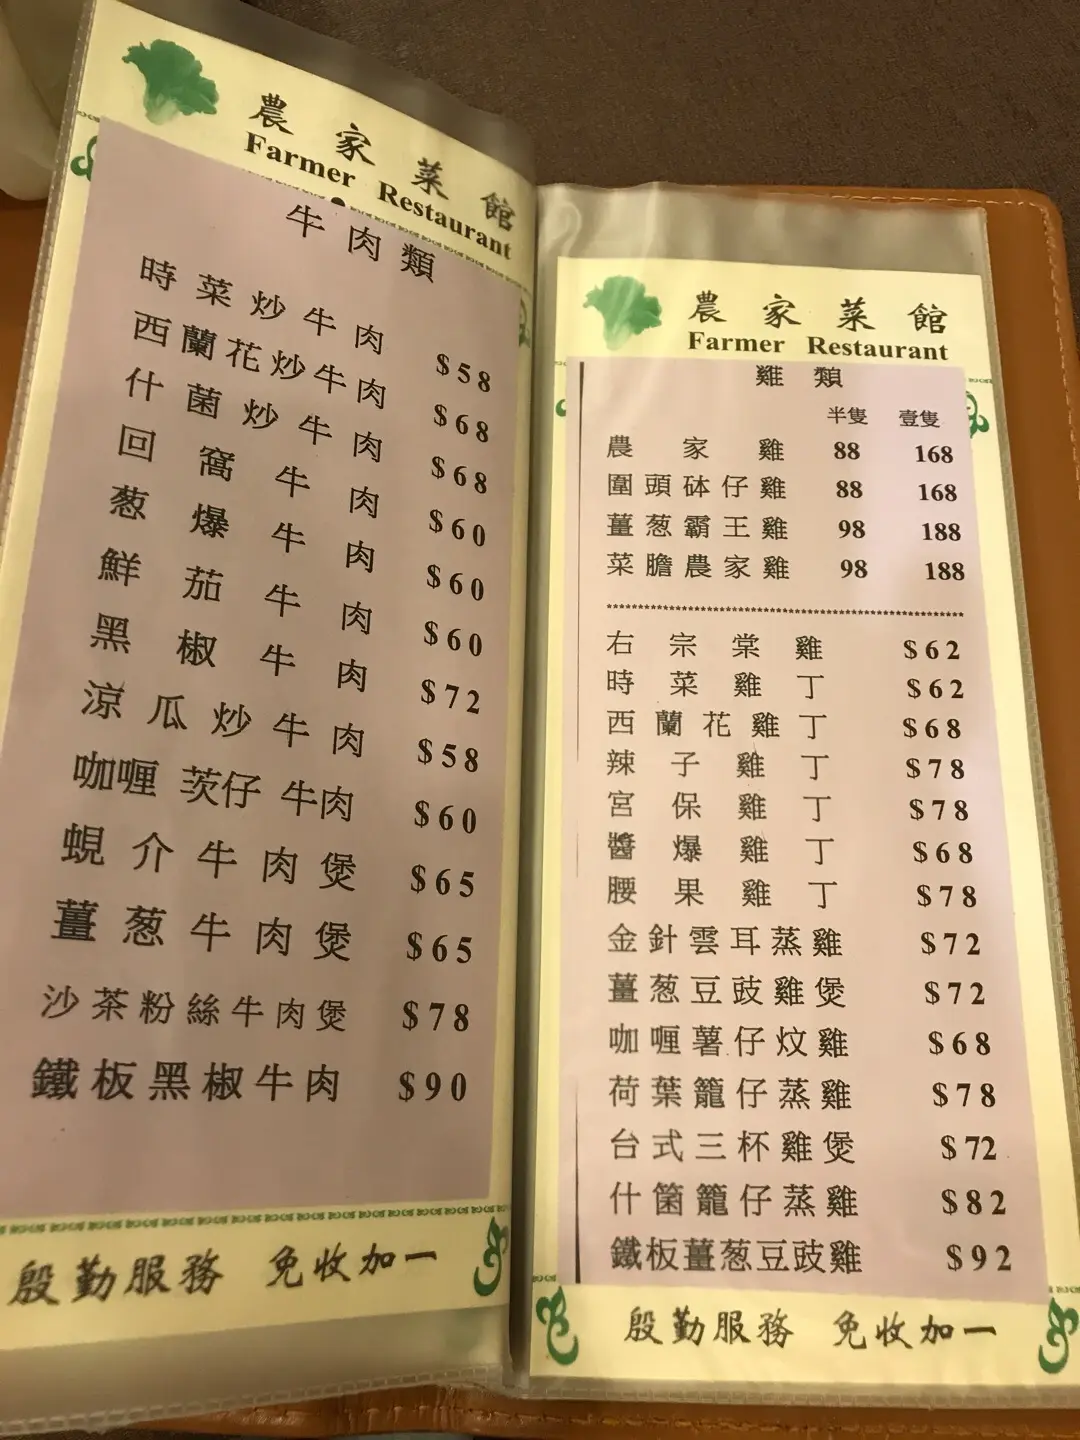 農家菜館
Farmer Restaurant
牛肉類
時菜炒牛肉 $58
西蘭花炒牛肉 $68
什菌炒牛肉 $68
回窩牛肉 $60
葱爆牛肉 $60
鮮茄牛肉 $60
黑椒牛肉 $72
涼瓜炒牛肉 $58
咖喱茨仔牛肉 $60
蜆介牛肉煲 $65
薑葱牛肉煲 $65
沙茶粉絲牛肉煲 $78
鐵板黑椒牛肉 $90
殷勤服務 免收加一
農家菜館
Farmer Restaurant
雞類
半隻 壹隻
農家雞 88 168
圍頭砵仔雞 88 168
薑葱霸王雞 98 188
菜膽農家雞 98 188
右宗棠雞 $62
時菜雞丁 $62
西蘭花雞丁 $68
辣子雞丁 $78
宮保雞丁 $78
醬爆雞丁 $68
腰果雞丁 $78
金針雲耳蒸雞 $72
薑葱豆豉雞煲 $72
咖喱薯仔炆雞 $68
荷葉籠仔蒸雞 $78
台式三杯雞煲 $72
什箘籠仔蒸雞 $82
鐵板薑葱豆豉雞 $92
殷勤服務 免收加一